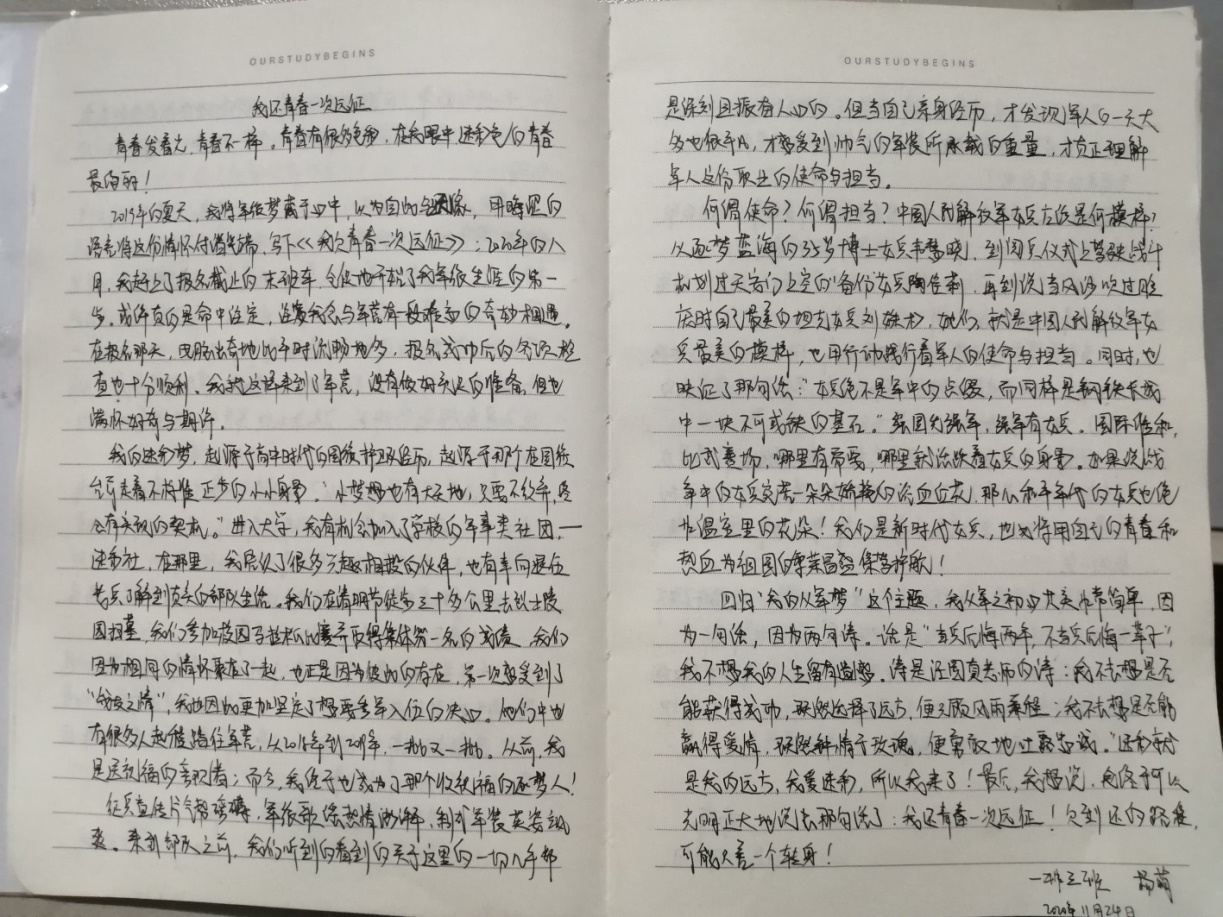 OURSTUDYBEGINS
我还青春一次远征
青春发着光,青春不一样。青春有很多色彩,在我眼中迷彩色的青春
最绚丽!
2019年的夏天,我将军旅梦藏于心中,以为自此会,用晦涩的
语言将这份情怀付诸笔端,写下《我欠青春一次远征》;2020年的八
月,我赶上了报名截止的末班车,仓促地开启了我军旅生涯的第一
步。或许真的是命中注定,注定我会与军营有一段难忘的奇妙相遇。
在报名那天,电脑出奇地比平时流畅地多,报名成功后的各项检
查也十分顺利。我就这样来到了军营,没有做好充足的准备,但也
满怀好奇与期许。
我的迷彩梦,起源于高中时代的国旗护卫经历,起源于那个在国旗
台前走着不标准正步的小小身影。"小梦想也有大天地,只要不放弃,终
会有实现的契机。"进入大学,我有机会加入了学校的军事类社团一
迷彩社,在那里,我层认识了很多兴趣相投的伙伴,也有幸向退伍
老兵了解到真实的部队生活。我们在清明节徒步三十多公里去烈士陵
园扫墓,我们参加校园马拉松比赛并取得集体第一名的成绩,我们
因为相同的情怀聚在了一起,也正是因为彼此的存在,第一次感受到了
"战友之情",我也因此更加坚定了想要参军入伍的决心。他们中也
有很多人起程踏往军营,从2018年到2019年,一批又一批。从前,我
是送祝福的旁观者;而今,我终于也成为了那个收获祝福的逐梦人!
征兵宣传片气势磅礴,军旅歌谣热情澎湃,制式军装英姿飒
爽。来到部队之前,我们听到的看到的关于这里的一切几乎都
OURSTUDYBEGINS
是深刻且振奋人心的。但当自己亲身经历,才发现军人的一天大
多也很平凡,才感受到帅气的军装所承载的重量,才真正理解
军人这份职业的使命与担当。
何谓使命?何谓担当?中国人民解放军女兵应该是何模样?
从逐梦蓝海的35岁博士女兵韦慧晓,到阅兵仪式上驾驶战斗
机划过天安门上空的"备份"女兵陶佳莉,再到说当风沙吹过脸
庞时自己最美的坦克女兵刘姝杉,她们,就是中国人民解放军女
兵最美的模样,也用行动践行着军人的使命与担当。同时,也
映证了那句话:"女兵绝不是军中的点缀,而同样是钢铁长城
中一块不可或缺的基石。"强国先强军,强军有女兵。国际维和,
比武赛场,哪里有需要,哪里就活跃着女兵的身影。如果说战
争年中的女兵宛若一朵朵娇艳的浴血红花,那么和平年代的女兵也绝
非温室里的花朵!我们是新时代女兵,也必将用自己的青春和
热血为祖国的繁荣昌盛保驾护航!
回归"我的从军梦"这个主题,我从军之初心其实非常简单,因
为一句话,因为两句诗。话是"当兵后悔两年,不当兵后悔一辈子",
我不想我的人生留有遗憾。诗是汪国真老师的诗:我不去想是否
能获得成功,既然选择了远方,便只顾风雨兼程;我不去想是否能
赢得爱情,既然钟情于玫瑰,便勇敢地吐露忠诚。"迷彩就
是我的远方,我爱迷彩,所以我来了!最后,我想说,我终于可以
光明正大地说出那句话了:我还青春一次远征!欠到还的距离,
可能只差一个转身!
一排三班 杨萌
2020年11月24日